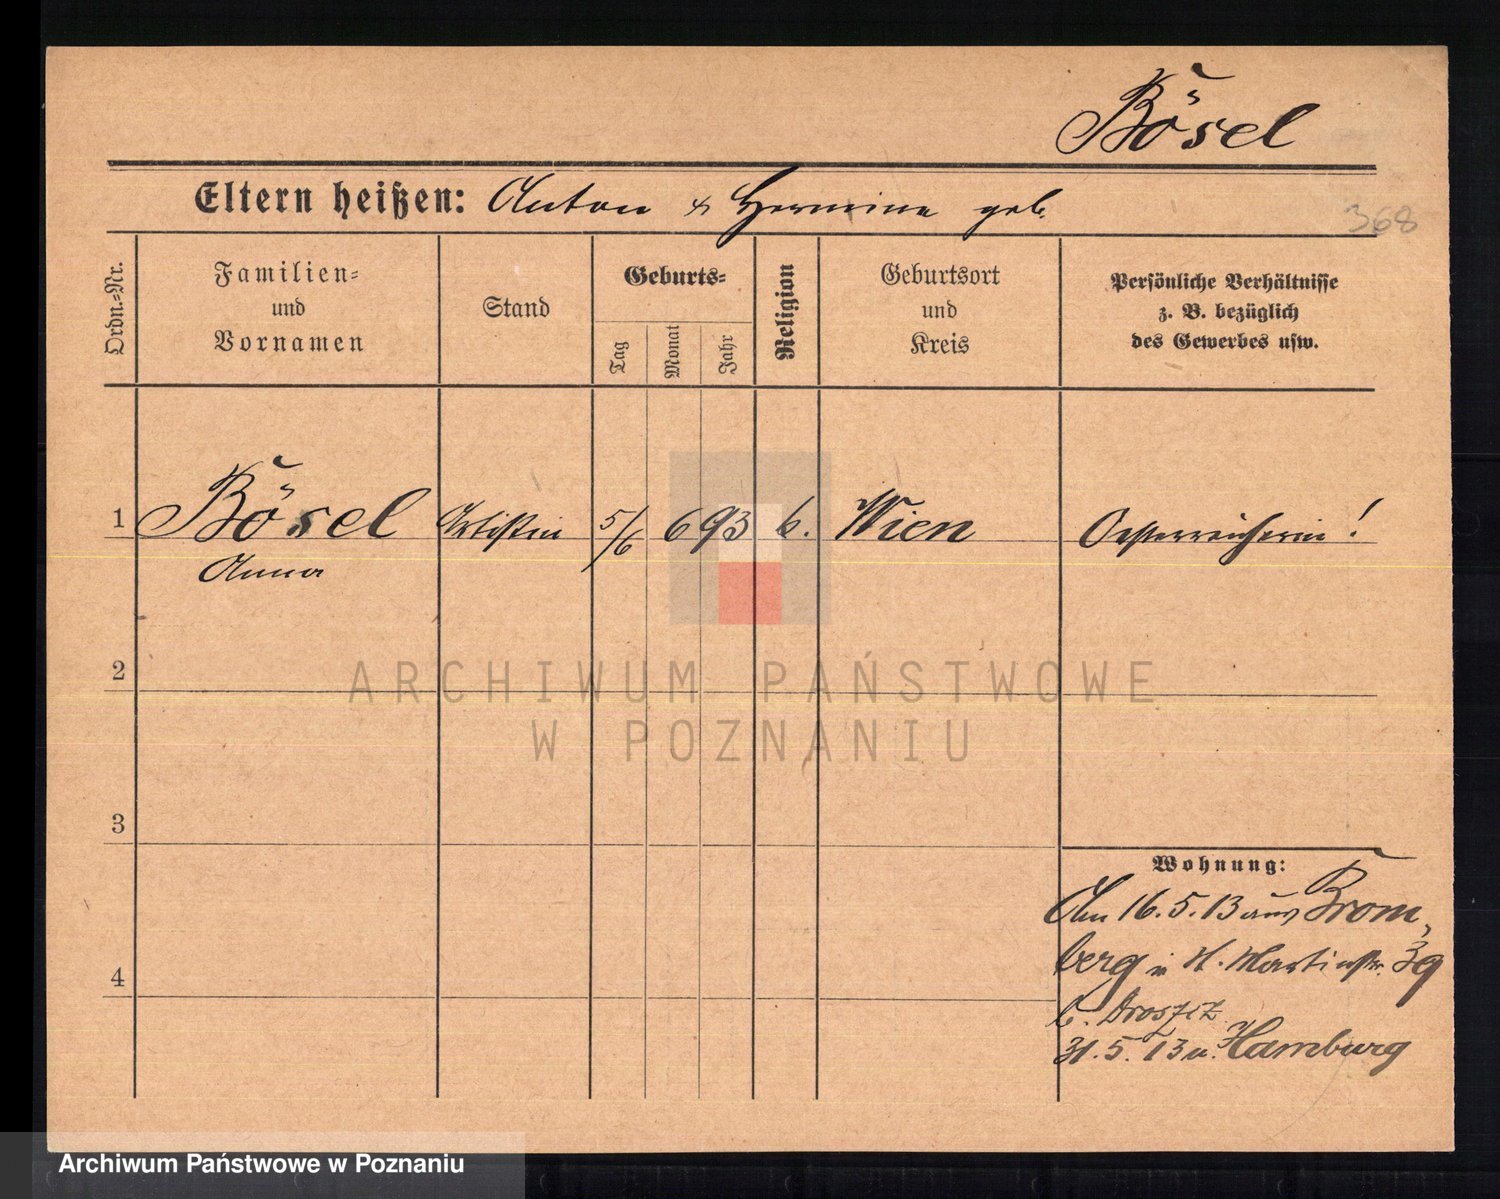 Bösel
Eltern heißen: Anton & Hermine geb.
368
Ordn.=Nr.
Familien=
und
Vornamen
Stand
Geburts=
Tag
Monat
Jahr
Religion
Geburtsort
und
Kreis
Persönliche Verhältnisse
z. B. bezüglich
des Gewerbes usw.
1 Bösel Artistin 5/6 6 93 k. Wien Oesterreicherin!
Anna
2
ARCHIWUM PAŃSTWOWE
W POZNANIU
3
Wohnung:
Am 16.5.13 aus Brom,
4
berg n St. Martinstr. 39
b. Droszcz
31.5.13 n. Hamburg
Archiwum Państwowe w Poznaniu